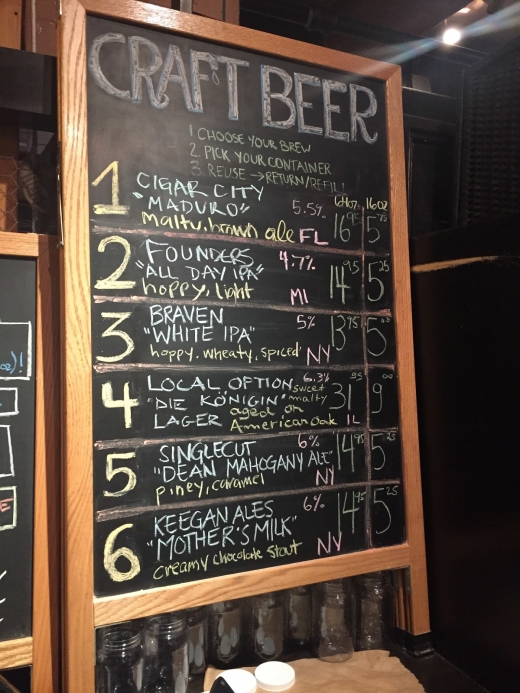 CRAFT BEER
1 CHOOSE YOUR BREW
2 PICK YOUR CONTAINER
3. REUSE → RETURN/REFILL
64oz. 16oz
1 CIGAR CITY
"MADURO" 5.5% 16 95 5 75
malty, brown ale FL
2 FOUNDERS 4.7%
"ALL DAY IPA" 14 95 5 25
hoppy, light MI
3 BRAVEN 5% 13 75 5 00
"WHITE IPA"
hoppy, wheaty, spiced NY
4 LOCAL OPTION 6.3% 31 95 9 00
"DIE KÖNIGIN" sweet malty
LAGER aged on American Oak IL
5 SINGLECUT 6% 14 95 5 25
"DEAN MAHOGANY ALE"
piney, caramel NY
6 KEEGAN ALES 6% 14 95 5 25
"MOTHER'S MILK"
creamy chocolate stout NY